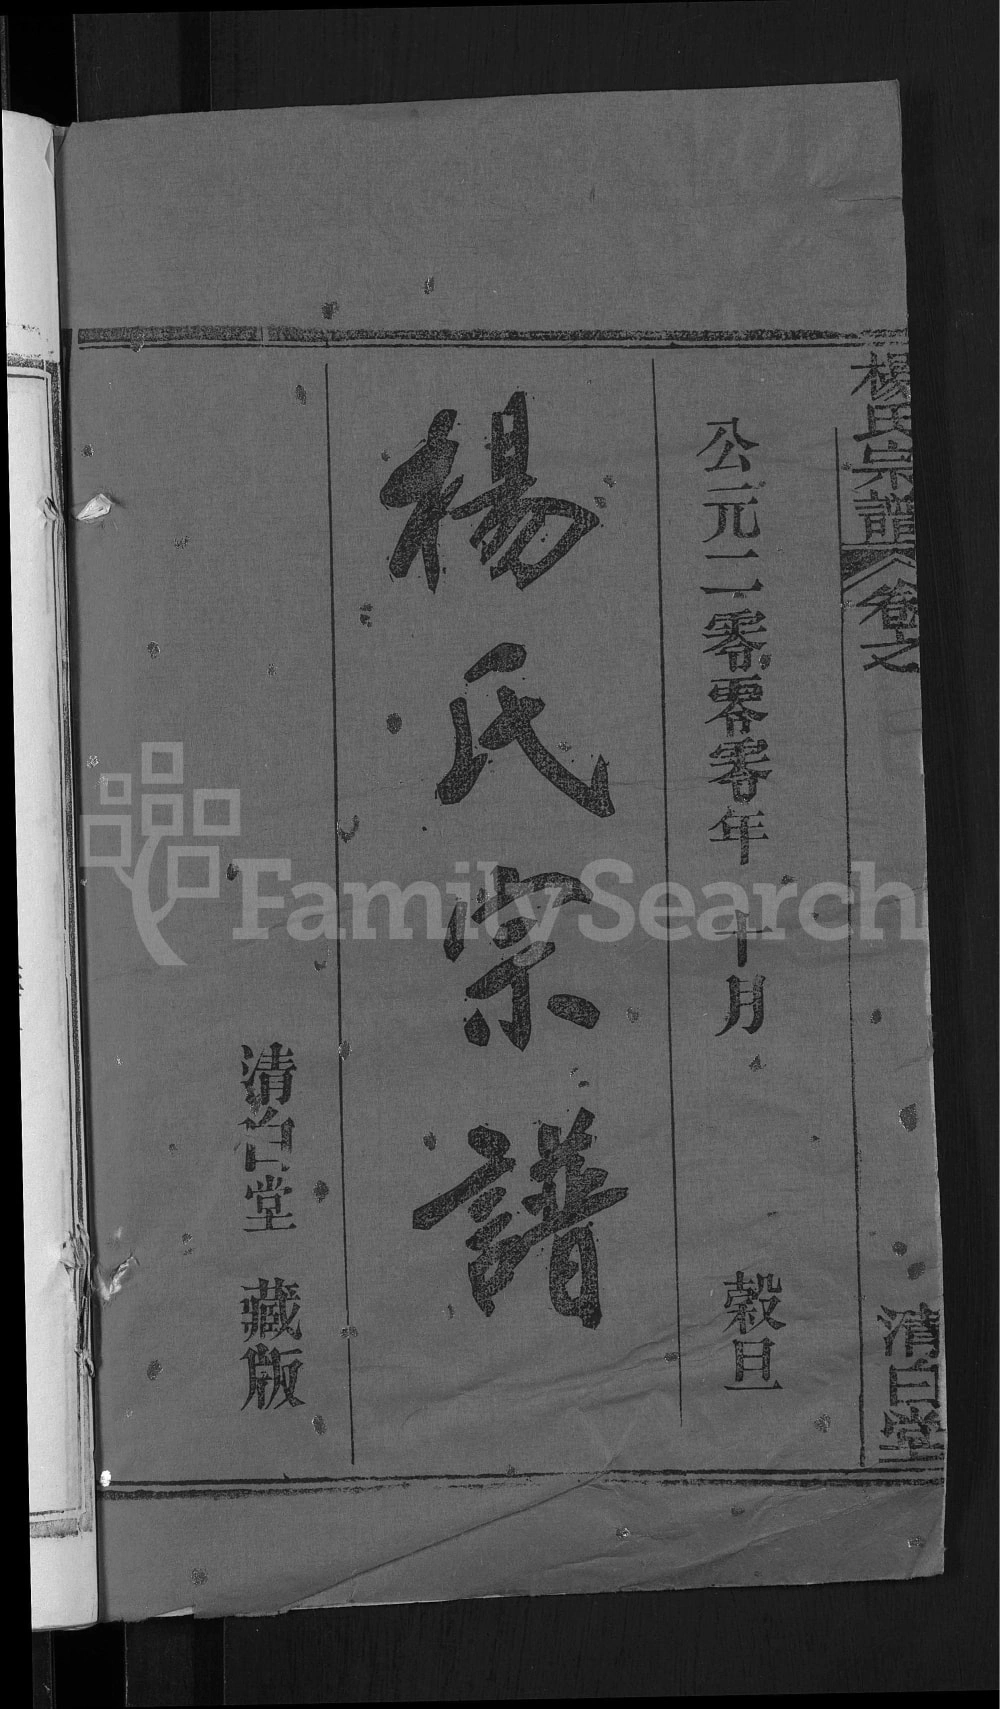 楊氏宗譜 卷之
清白堂
公元二零零零年 十月 穀旦
楊氏宗譜
清白堂 藏版
FamilySearch